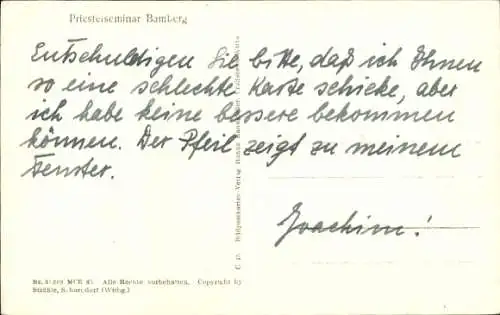 Priesterseminar Bamberg
Entschuldigen Sie bitte, daß ich Ihnen
so eine schlechte Karte schicke, aber
ich habe keine bessere bekommen
können. Der Pfeil zeigt zu meinem
Fenster.
Joachim!
Alle Rechte vorbehalten. Copyright by
Stähle, Schorndorf (Wttbg.)